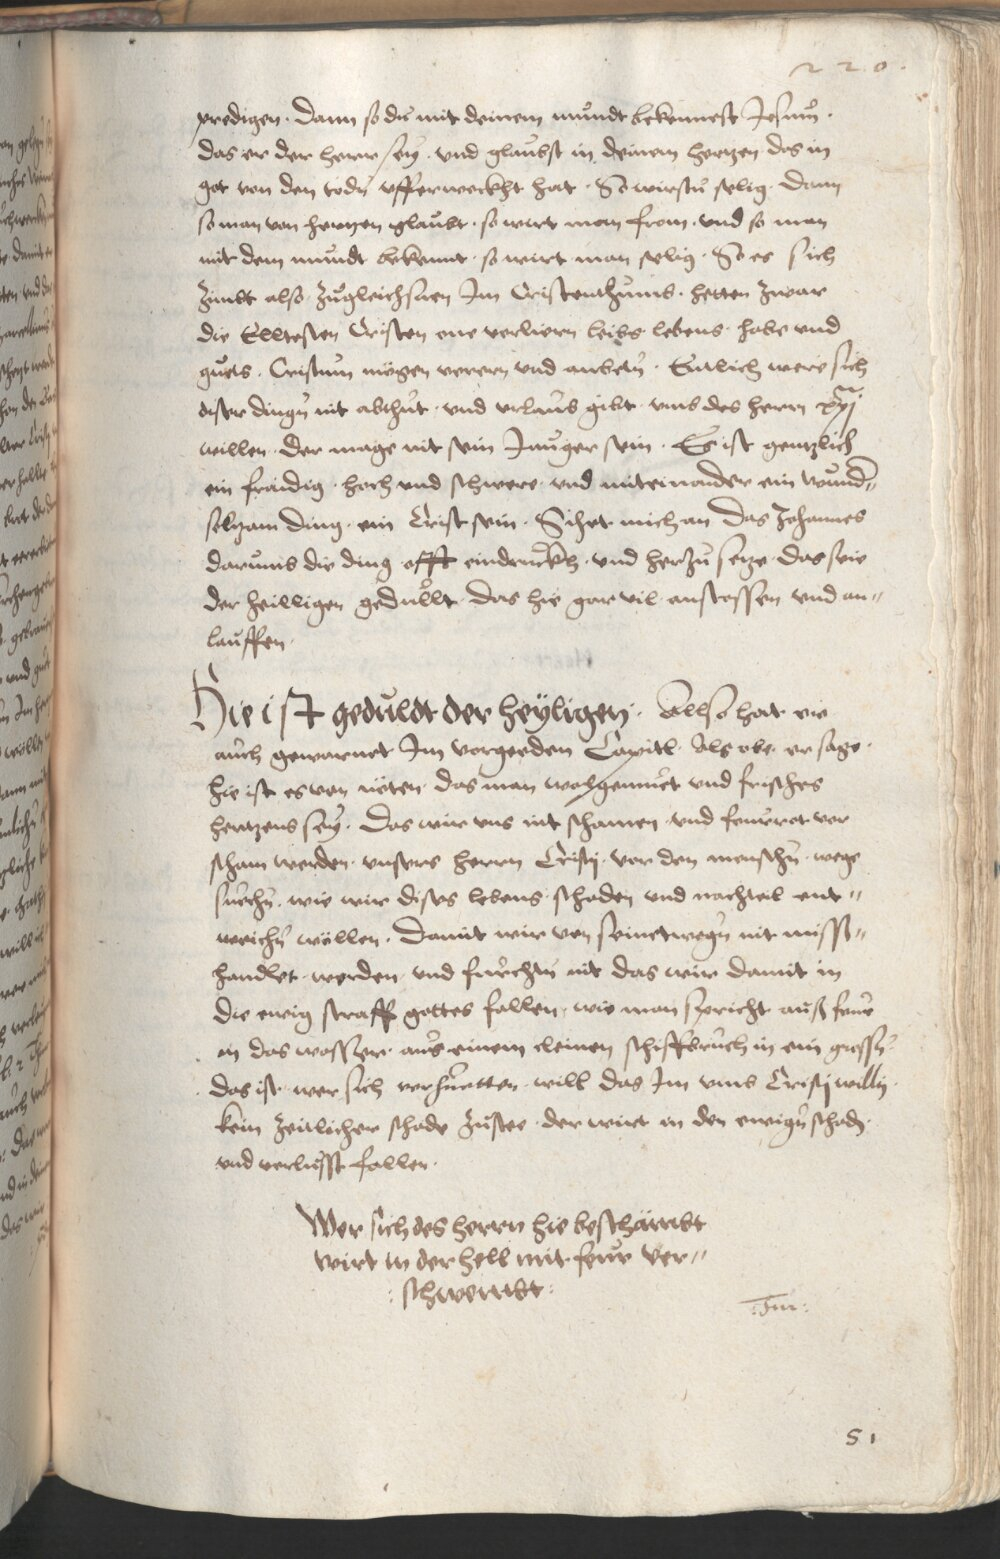 220.
predigen. Dann so du mit deinem mundt bekennest Jesum.
das er der herr sey. vnd glaubst in deinem hertzen das in
got von den todn̄ vfferweckht hat. So wirstu selig. Dann
so man von hertzen glaubt. so wirt man from. vnd so man
mit dem mundt bekennt. so wirt man selig. So es sich
zimbt also. Im Cristenthumb. hetten zwar
die Elltesten Cristen one verliern leibs lebens. habe vnd
guets. Cristum mögen vereren vnd anbeten. Entlich were sich
diser dingn̄ nit abthut. vnd vrlaub gibt. vmb des herrn xp̄i
willen. der mage nit sein Junger sein. Es ist gentzlich
ein fraidig. hoch vnd schwere. vnd miteinander ein wund=
selzam ding. ein Crist sein. Sihet mich an das Johannes
darumb die ding offt eindruckh. vnd herzu setze. das seie
der heilligen gedullt. das hie gar vil anstossen vnd an=
lauffen.
Hie ist geduldt der heyligen. Allso hat er
auch gewarnet Im vorgeenden Capitl. als obe er sage.
hie ist es von nöten. das man wolgemuet vnd frisches
hertzens sey. Das wir vns nit schamen. vnd feurrot vor
scham werden. vnsers herrn Cristj. vor den menschn̄. wege
suechn̄. wie wir dises lebens schaden vnd nachteil ent=
weichn̄ wöllen. Damit wir von seinetwegn̄ nit miss=
handlet werden. vnd furchtn̄ nit das wir damit in
die ewig straff gottes fallen. wie man spricht auss feur
in das wasser. aus einem cleinen schiffbruch in ein grossn̄.
das ist. wer sich verhuetten will das Im vmb Cristj willn̄.
kein zeitlicher schade zustee. der wirt in den ewign̄ schadn̄.
vnd verlusst fallen.
Wer sich des herrn hie beschämbt
wirt in der hell mit feur ver=
: schwembt :
: Im :
51